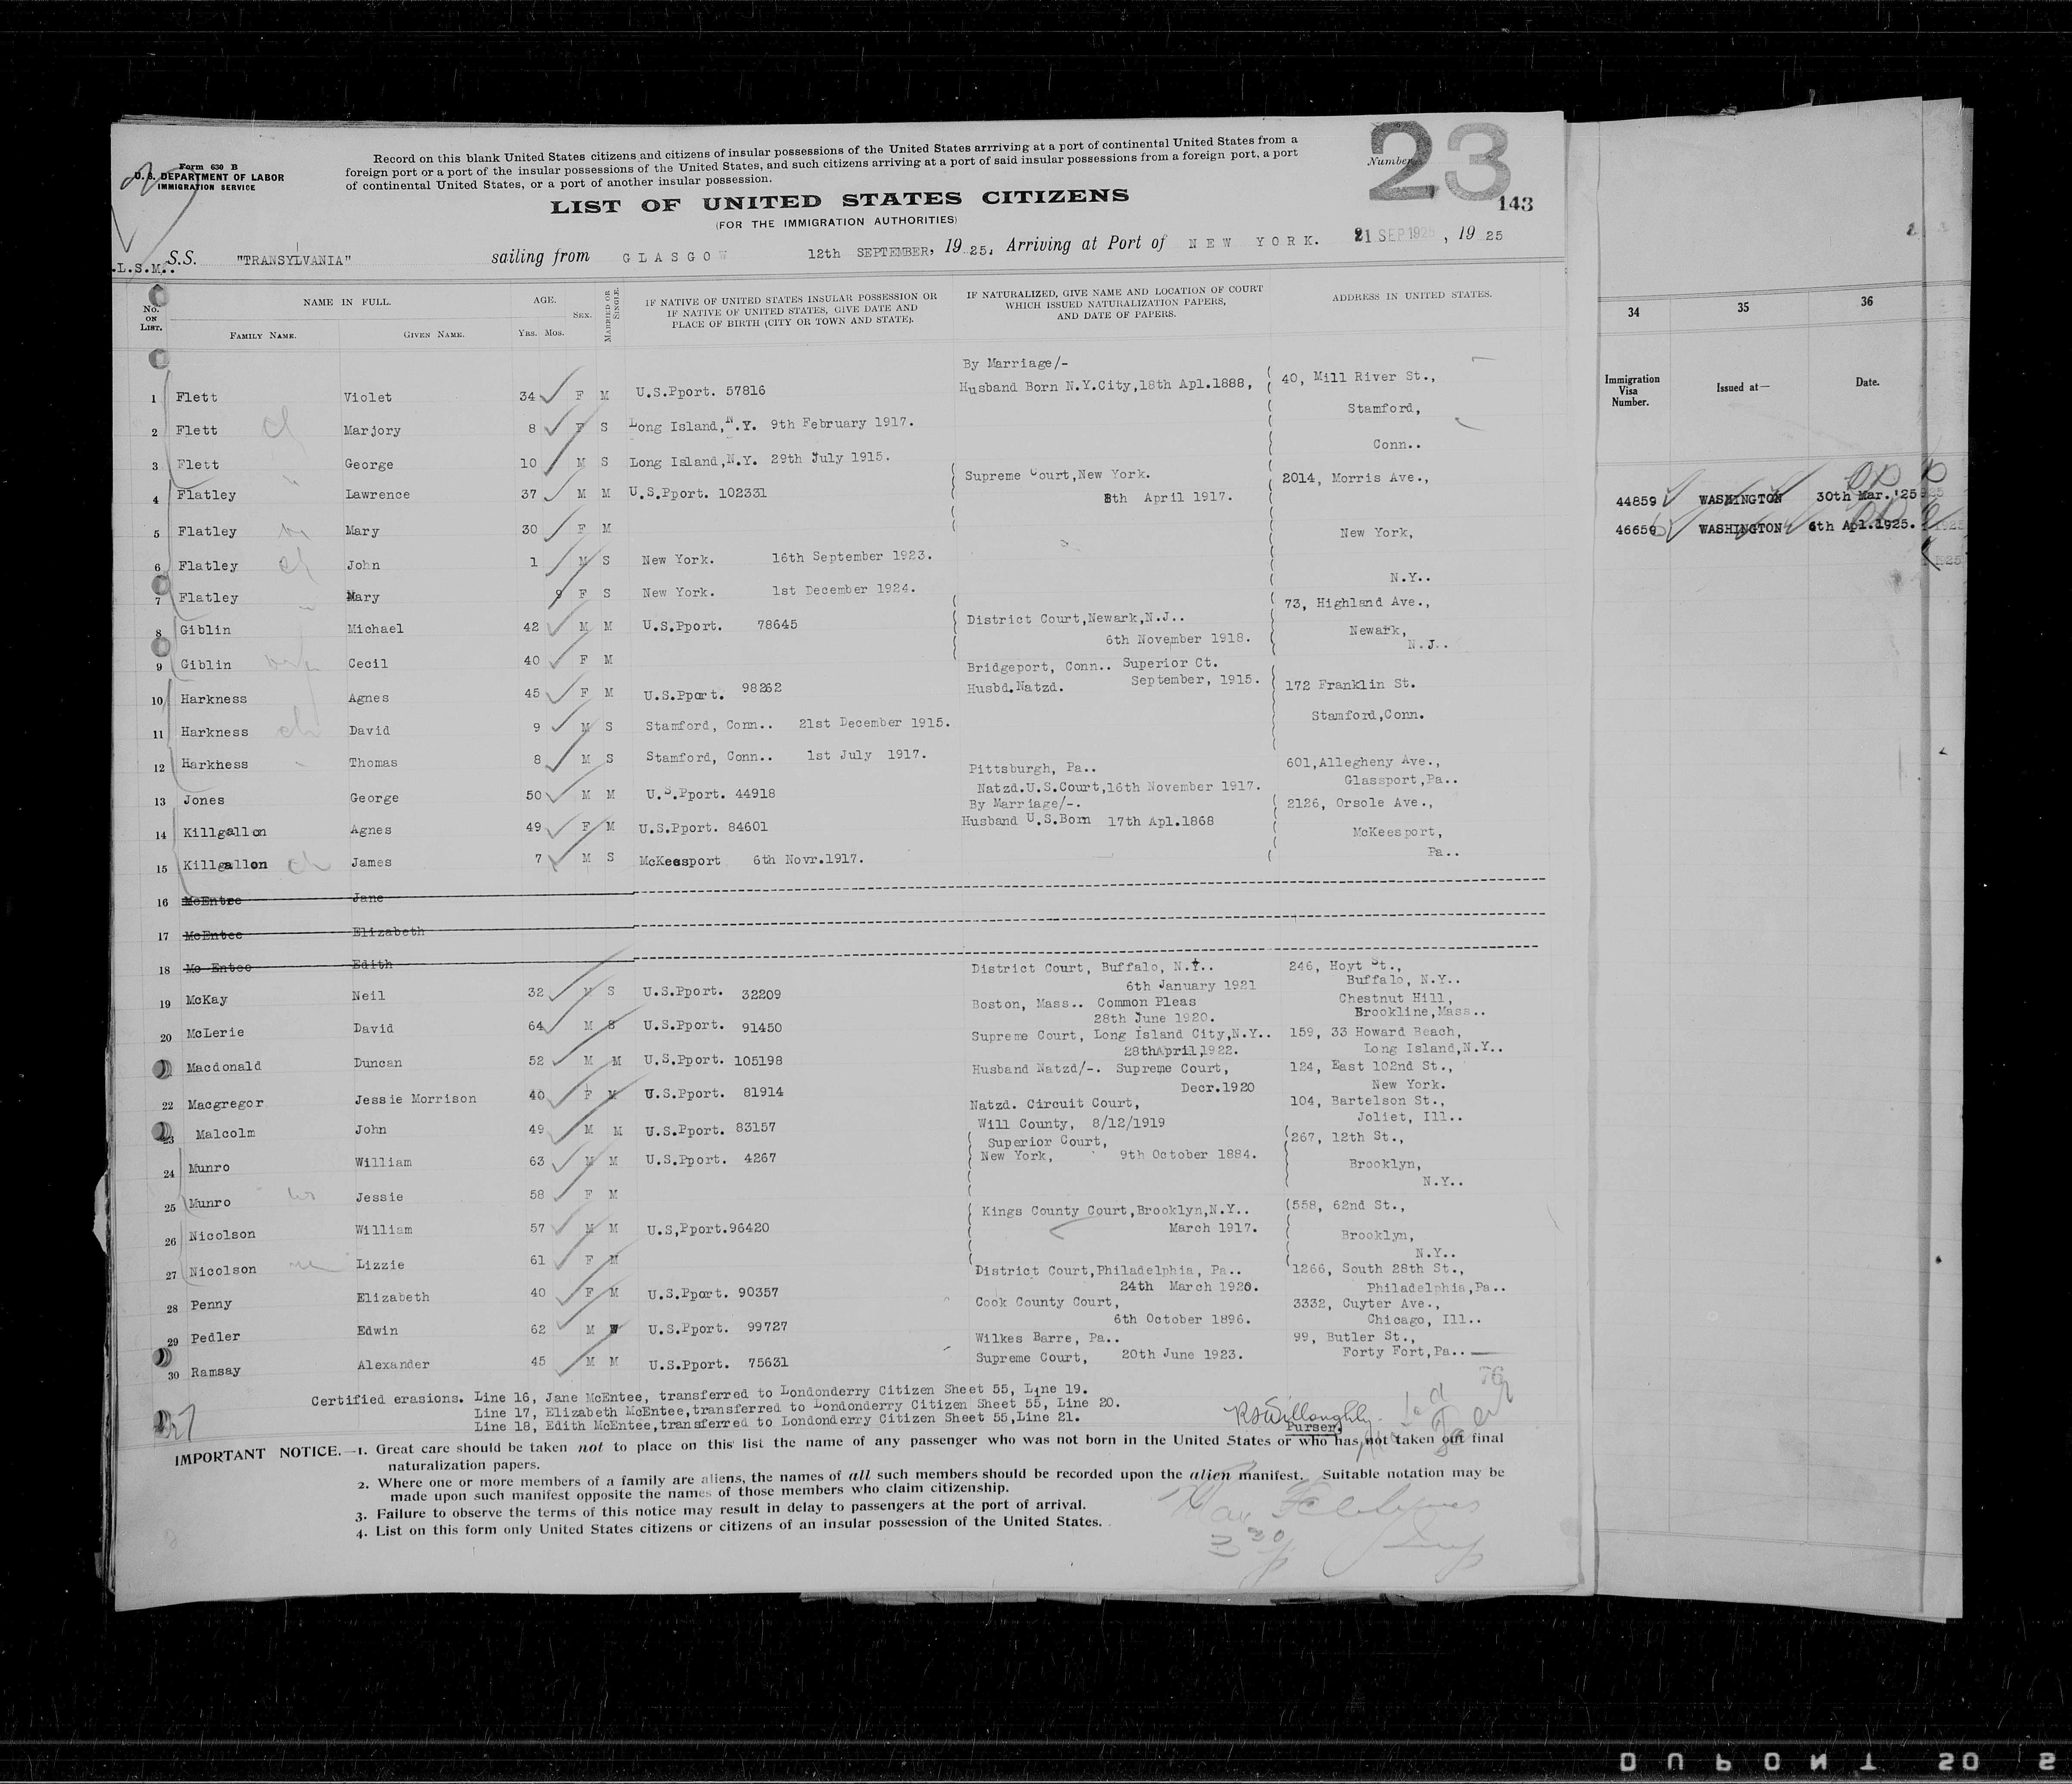 Form 630 B
U. S. DEPARTMENT OF LABOR
IMMIGRATION SERVICE
Record on this blank United States citizens and citizens of insular possessions of the United States arrriving at a port of continental United States from a
foreign port or a port of the insular possessions of the United States, and such citizens arriving at a port of said insular possessions from a foreign port, a port
of continental United States, or a port of another insular possession.
Number
23
143
LIST OF UNITED STATES CITIZENS
(FOR THE IMMIGRATION AUTHORITIES)
.L.S.M.. S.S. "TRANSYLVANIA" sailing from GLASGOW 12th SEPTEMBER, 19 25, Arriving at Port of NEW YORK. 21 SEP 1925, 19 25
No. ON LIST. NAME IN FULL. AGE. SEX. MARRIED OR SINGLE. IF NATIVE OF UNITED STATES INSULAR POSSESSION OR IF NATIVE OF UNITED STATES, GIVE DATE AND PLACE OF BIRTH (CITY OR TOWN AND STATE). IF NATURALIZED, GIVE NAME AND LOCATION OF COURT WHICH ISSUED NATURALIZATION PAPERS, AND DATE OF PAPERS. ADDRESS IN UNITED STATES.
FAMILY NAME. GIVEN NAME. Yrs. Mos.
By Marriage/-
1 Flett Violet 34 F M U.S.Pport. 57816 Husband Born N.Y.City,18th Apl.1888, 40, Mill River St.,
Stamford,
2 Flett Marjory 8 F S Long Island,N.Y. 9th February 1917.
Conn..
3 Flett George 10 M S Long Island,N.Y. 29th July 1915.
Supreme Court,New York. 2014, Morris Ave.,
4 Flatley Lawrence 37 M M U.S.Pport. 102331 8th April 1917.
5 Flatley Mary 30 F M New York,
6 Flatley John 1 M S New York. 16th September 1923.
N.Y..
7 Flatley Mary 9 F S New York. 1st December 1924.
73, Highland Ave.,
8 Giblin Michael 42 M M U.S.Pport. 78645 District Court,Newark,N.J.. Newark,
6th November 1918. N.J..
9 Giblin Cecil 40 F M
Bridgeport, Conn.. Superior Ct.
10 Harkness Agnes 45 F M U.S.Pport. 98262 Husbd.Natzd. September, 1915. 172 Franklin St.
Stamford,Conn.
11 Harkness David 9 M S Stamford, Conn.. 21st December 1915.
12 Harkness Thomas 8 M S Stamford, Conn.. 1st July 1917.
Pittsburgh, Pa.. 601,Allegheny Ave.,
Glassport,Pa..
13 Jones George 50 M M U.S.Pport. 44918 Natzd.U.S.Court,16th November 1917.
By Marriage/-. 2126, Orsole Ave.,
14 Killgallon Agnes 49 F M U.S.Pport. 84601 Husband U.S.Born 17th Apl.1868 McKeesport,
15 Killgallon James 7 M S McKeesport 6th Novr.1917. Pa..
16 McEntee Jane
17 McEntee Elizabeth
18 Mc Entee Edith
District Court, Buffalo, N.Y.. 246, Hoyt St.,
19 McKay Neil 32 M S U.S.Pport. 32209 6th January 1921 Buffalo, N.Y..
Boston, Mass.. Common Pleas Chestnut Hill,
20 McLerie David 64 M S U.S.Pport. 91450 28th June 1920. Brookline,Mass..
Supreme Court, Long Island City,N.Y.. 159, 33 Howard Beach,
Macdonald Duncan 52 M M U.S.Pport. 105198 28thApril,1922. Long Island,N.Y..
Husband Natzd/-. Supreme Court, 124, East 102nd St.,
22 Macgregor Jessie Morrison 40 F M U.S.Pport. 81914 Decr.1920 New York.
Natzd. Circuit Court, 104, Bartelson St.,
23 Malcolm John 49 M M U.S.Pport. 83157 Will County, 8/12/1919 Joliet, Ill..
Superior Court, 267, 12th St.,
24 Munro William 63 M M U.S.Pport. 4267 New York, 9th October 1884. Brooklyn,
N.Y..
25 Munro Jessie 58 F M
Kings County Court,Brooklyn,N.Y.. 558, 62nd St.,
26 Nicolson William 57 M M U.S,Pport.96420 March 1917. Brooklyn,
N.Y..
27 Nicolson Lizzie 61 F M
District Court,Philadelphia, Pa.. 1266, South 28th St.,
28 Penny Elizabeth 40 F M U.S.Pport. 90357 24th March 1920. Philadelphia,Pa..
Cook County Court, 3332, Cuyter Ave.,
29 Pedler Edwin 62 M W U.S.Pport. 99727 6th October 1896. Chicago, Ill..
Wilkes Barre, Pa.. 99, Butler St.,
30 Ramsay Alexander 45 M M U.S.Pport. 75631 Supreme Court, 20th June 1923. Forty Fort,Pa..
Certified erasions. Line 16, Jane McEntee, transferred to Londonderry Citizen Sheet 55, Line 19.
Line 17, Elizabeth McEntee,transferred to Londonderry Citizen Sheet 55, Line 20.
Line 18, Edith McEntee,transferred to Londonderry Citizen Sheet 55,Line 21.
Purser.
IMPORTANT NOTICE.—1. Great care should be taken not to place on this list the name of any passenger who was not born in the United States or who has not taken out final
naturalization papers.
2. Where one or more members of a family are aliens, the names of all such members should be recorded upon the alien manifest. Suitable notation may be
made upon such manifest opposite the names of those members who claim citizenship.
3. Failure to observe the terms of this notice may result in delay to passengers at the port of arrival.
4. List on this form only United States citizens or citizens of an insular possession of the United States.
34 35 36
Immigration Visa Number. Issued at— Date.
44859 WASHINGTON 30th Mar.'25
46659 WASHINGTON 6th Apl.1925.
DUPONT 50 S